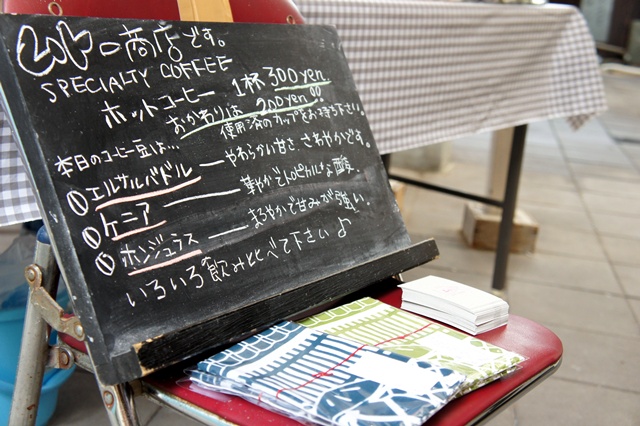 一商店です。
SPECIALTY COFFEE
ホットコーヒー 1杯 300yen.
おかわりは 200yen!!
使用済のカップをお持ち下さい。
本日のコーヒー豆は…
① エルサルバドル ― やわらかい甘さ さわやかです。
① ケニア ― 華やかでトロピカルな酸味.
① ホンジュラス ― まろやかで甘みが強い.
いろいろ飲みくらべて下さい♪